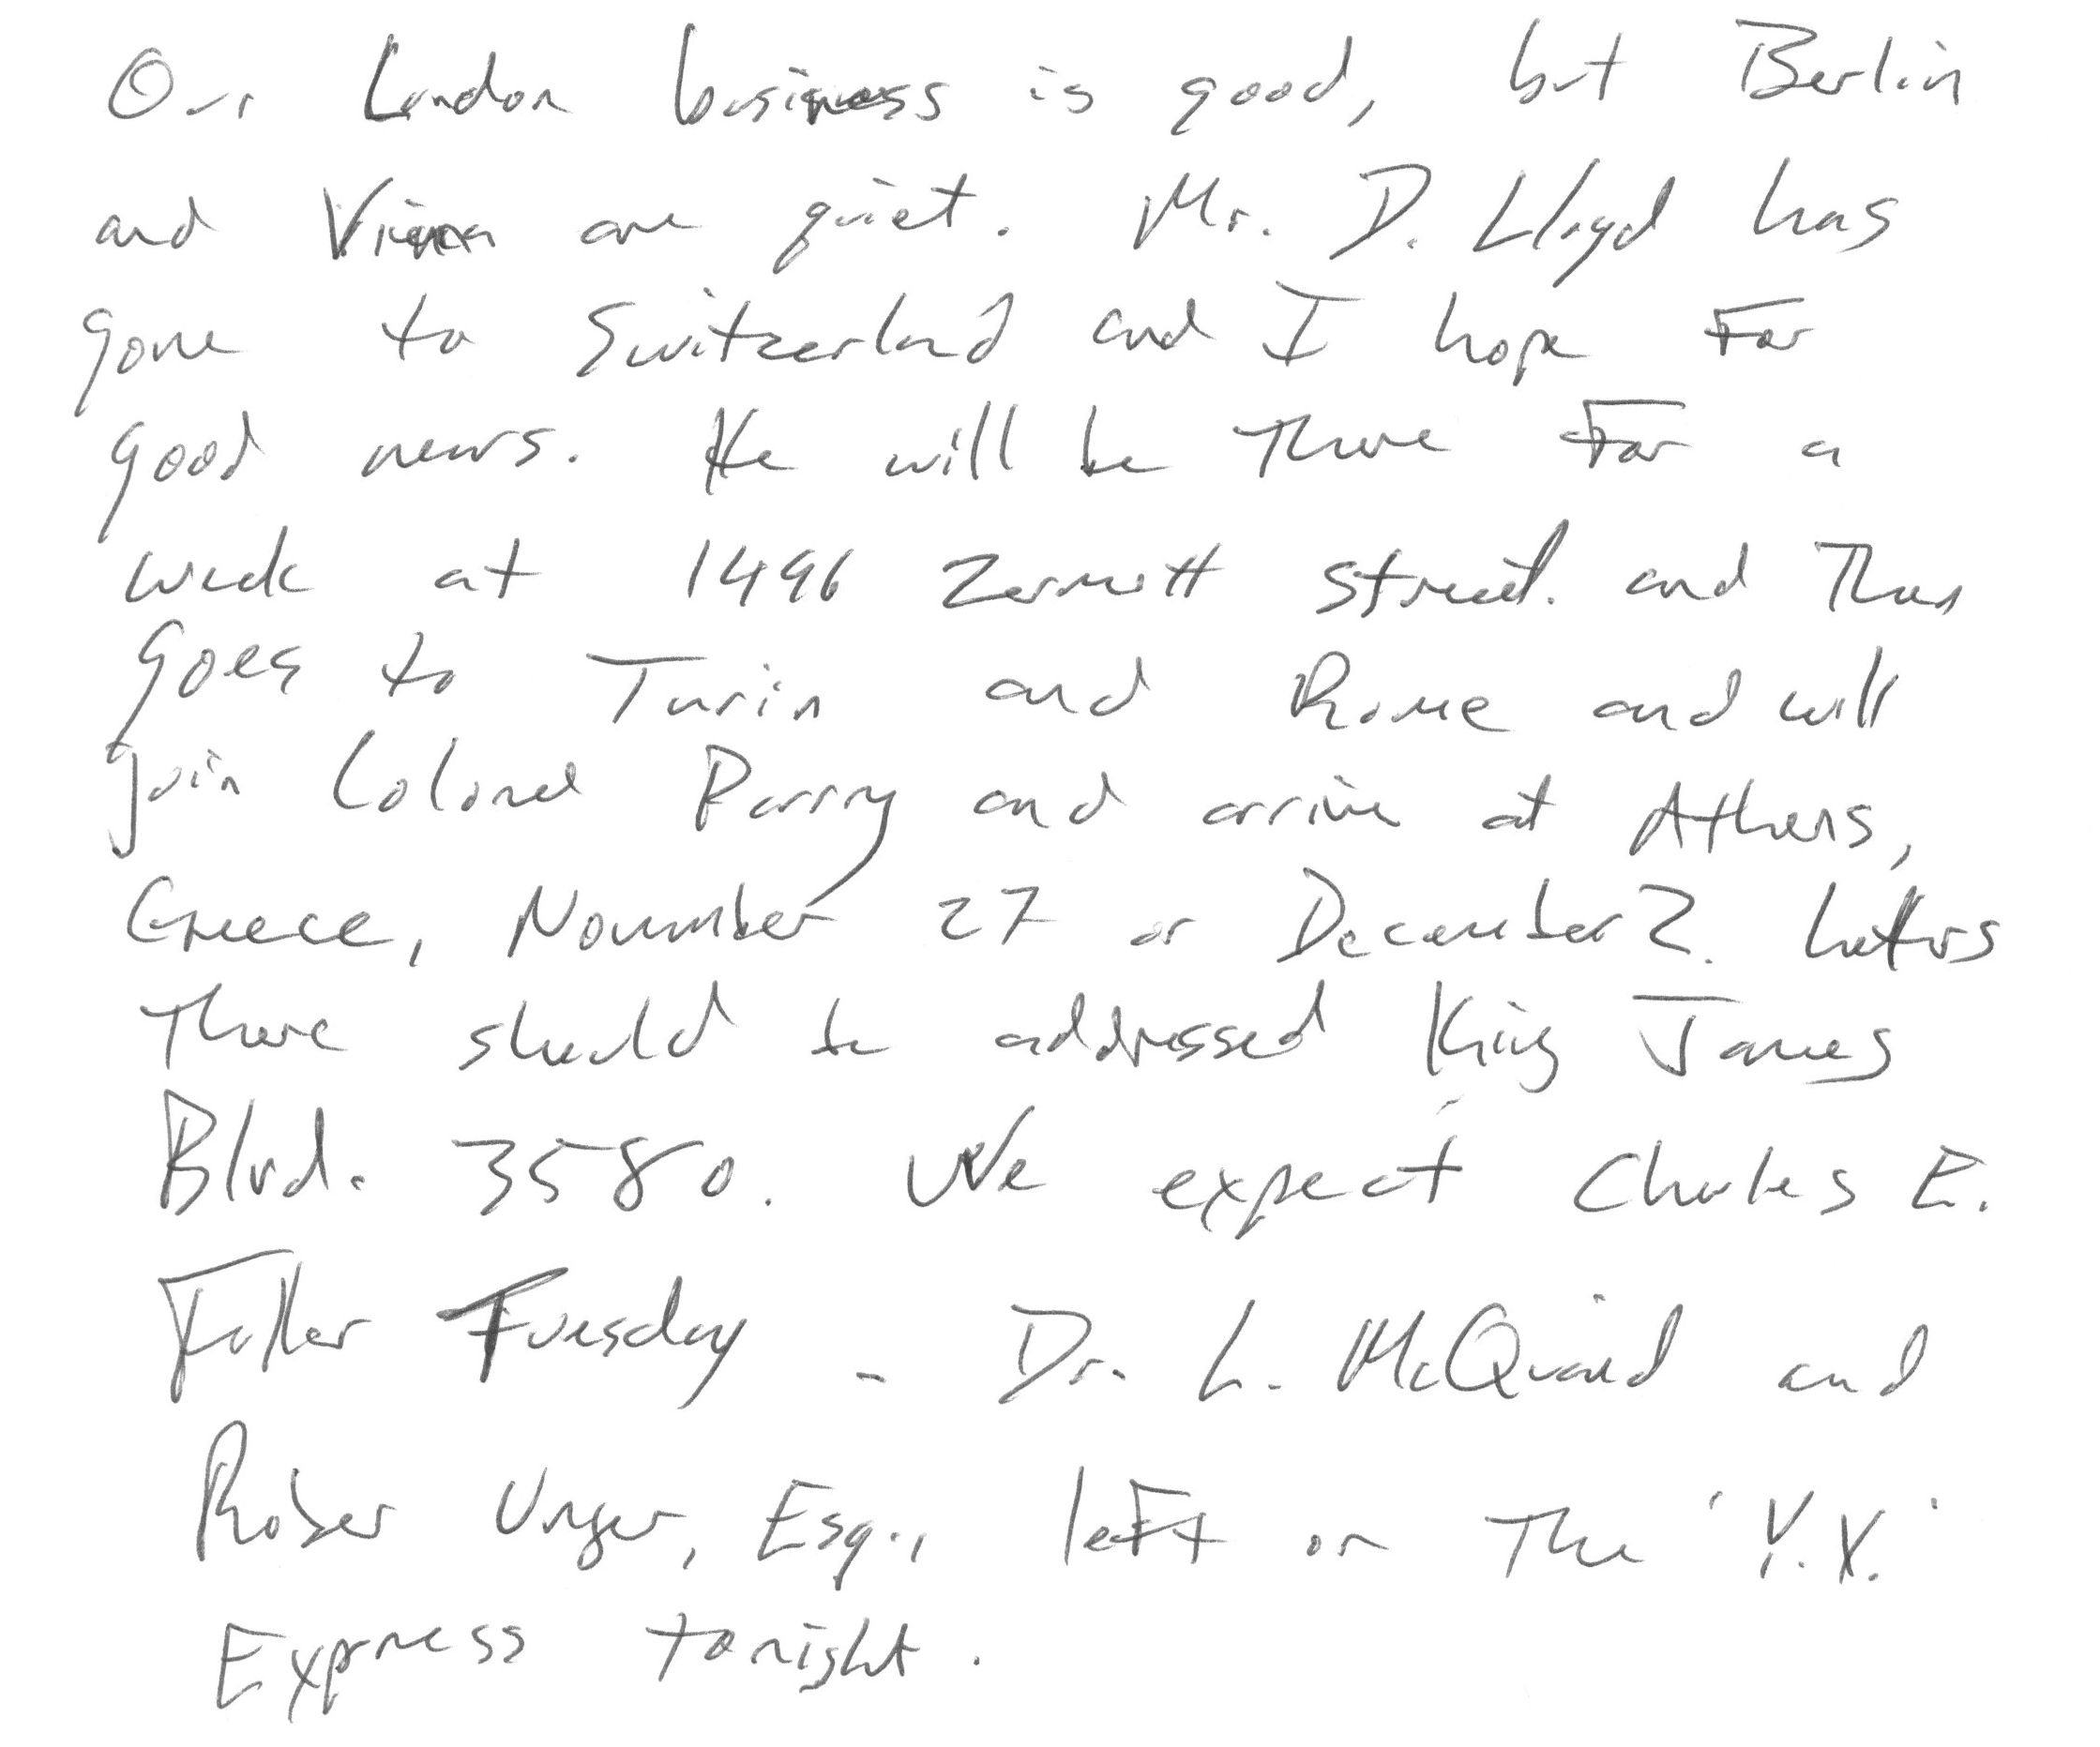 Our London business is good, but Berlin
and Vienna are quiet. Mr. D. Lloyd has
gone to Switzerland and I hope for
good news. He will be there for a
week at 1496 Zermott street. and then
goes to Turin and Rome and will
join Colonel Parry and arrive at Athens,
Greece, November 27 or December 2. Letters
there should be addressed King James
Blvd. 3580. We expect Charles E.
Fuller Tuesday - Dr. L. McQuaid and
Rober Unger, Esq., left on the 'Y.X.'
Express tonight.